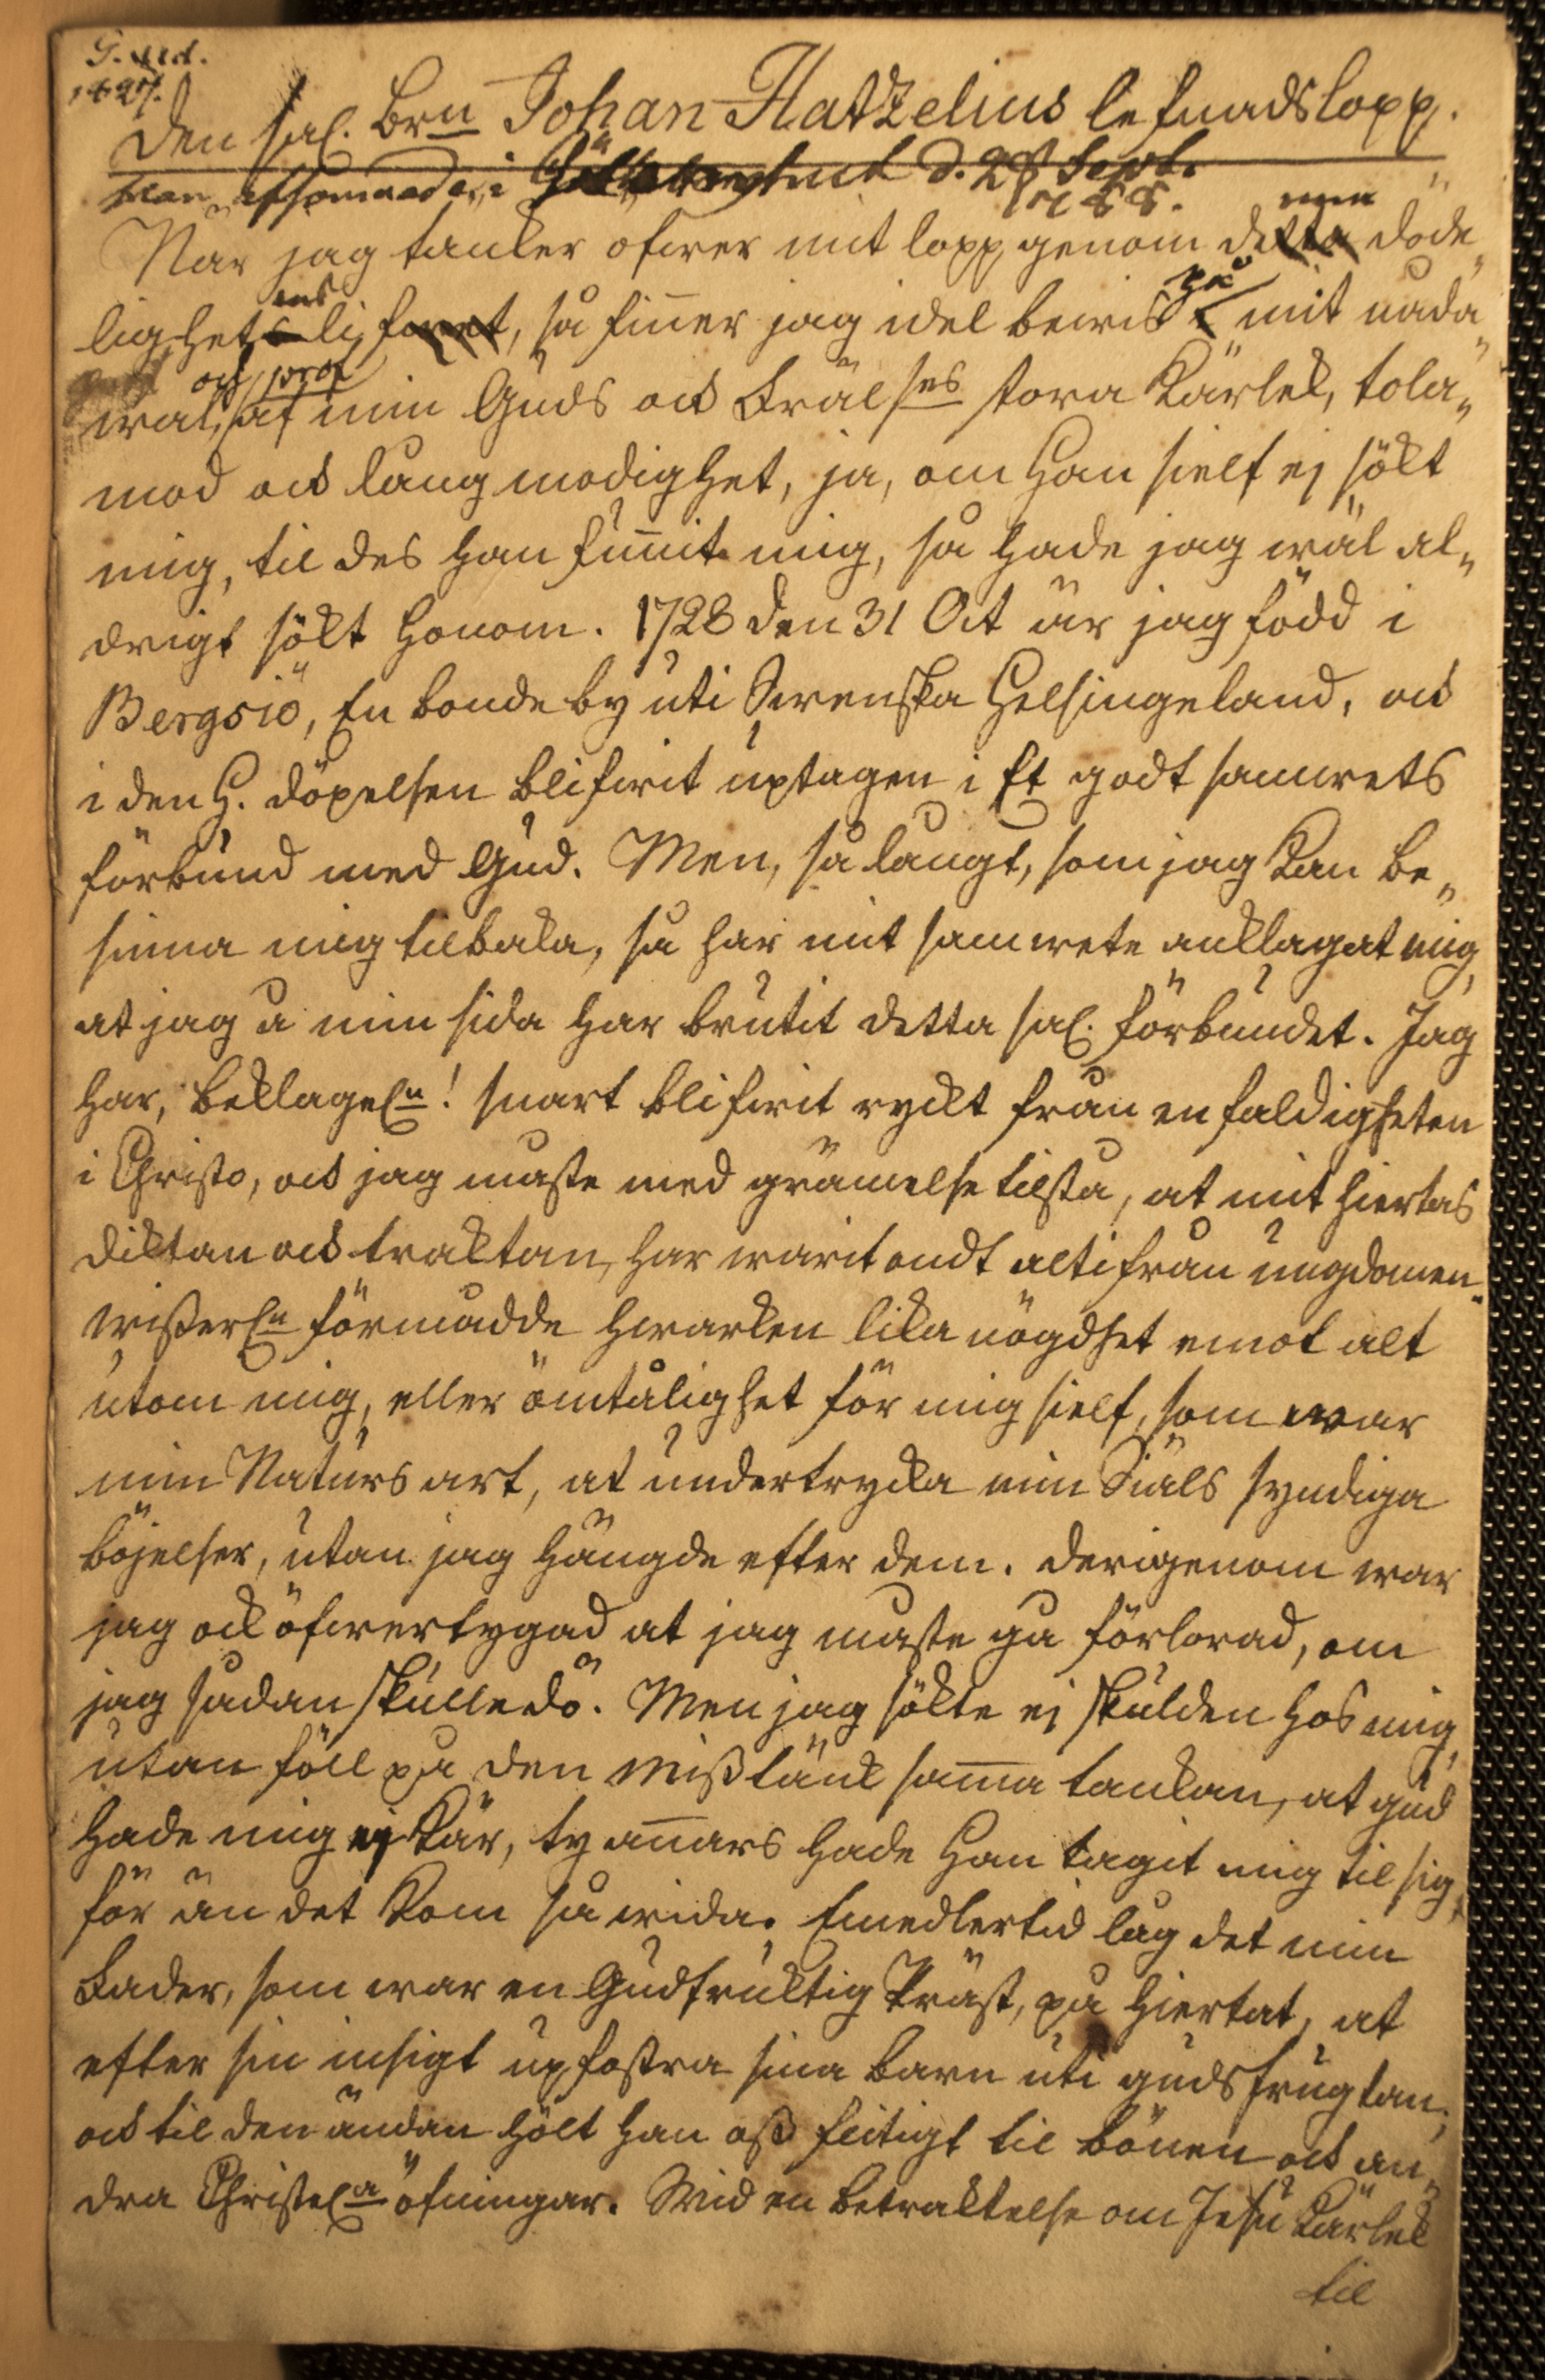 Den sal. Brn Johan Hatzelius lefnadslopp.
Han afsomnade, i d. 28 Sept.
När jag tänker öfwer mit lopp genom detta döde„
lighets lif, så finner jag idel bewis på mit nåda„
wal, och prof af min Guds och Frälses stora Kärlek, tola„
mod och långmodighet, ja, om Han sielf ej sökt
mig, til des Han funnit mig, så hade jag wäl al„
drigt sökt Honom. 1728 den 31 Oct är jag född i
Bergsiö, En bondeby uti Swenska Helsingeland, och
i den H. döpelsen blifwit uptagen i Et godt samwets
förbund med Gud. Men, så långt, som jag kan be„
sinna mig tilbaka, så har mit samwete anklagat mig,
at jag å min sida har brutit detta sal. förbundet. Jag
har, beklageln! snart blifwit ryckt från enfaldigheten
i Christo, och jag måste med grämelse tilstå, at mit hiertas
diktan och traktan, har warit ondt alt ifrån ungdomen.
Wisserln förmådde hwarken lika nögdhet emot alt
utom mig, eller ömtålighet för mig sielf, som war
min Naturs art, at undertrycka min Siäls syndiga
böjelser, utan jag hängde efter dem. Derigenom war
jag och öfwertygad at jag måste gå förlorad, om
jag sådan skulle dö. Men jag sökte ej skulden hos mig,
utan föll på den misstänksamma tankan, at Gud
hade mig ej kär, ty annars hade Han tagit mig til sig,
för än det kom så wida. Emedlertid låg det min
Fader, som war en Gudfruktig Präst, på hiertat, at
efter sin insigt upfostra sina barn uti gudsfrugtan,
och til den ändan hölt han oss flitigt til bönen och an„
dra Christela öfningar. Wid en betraktelse om Jesu Kärlek
til